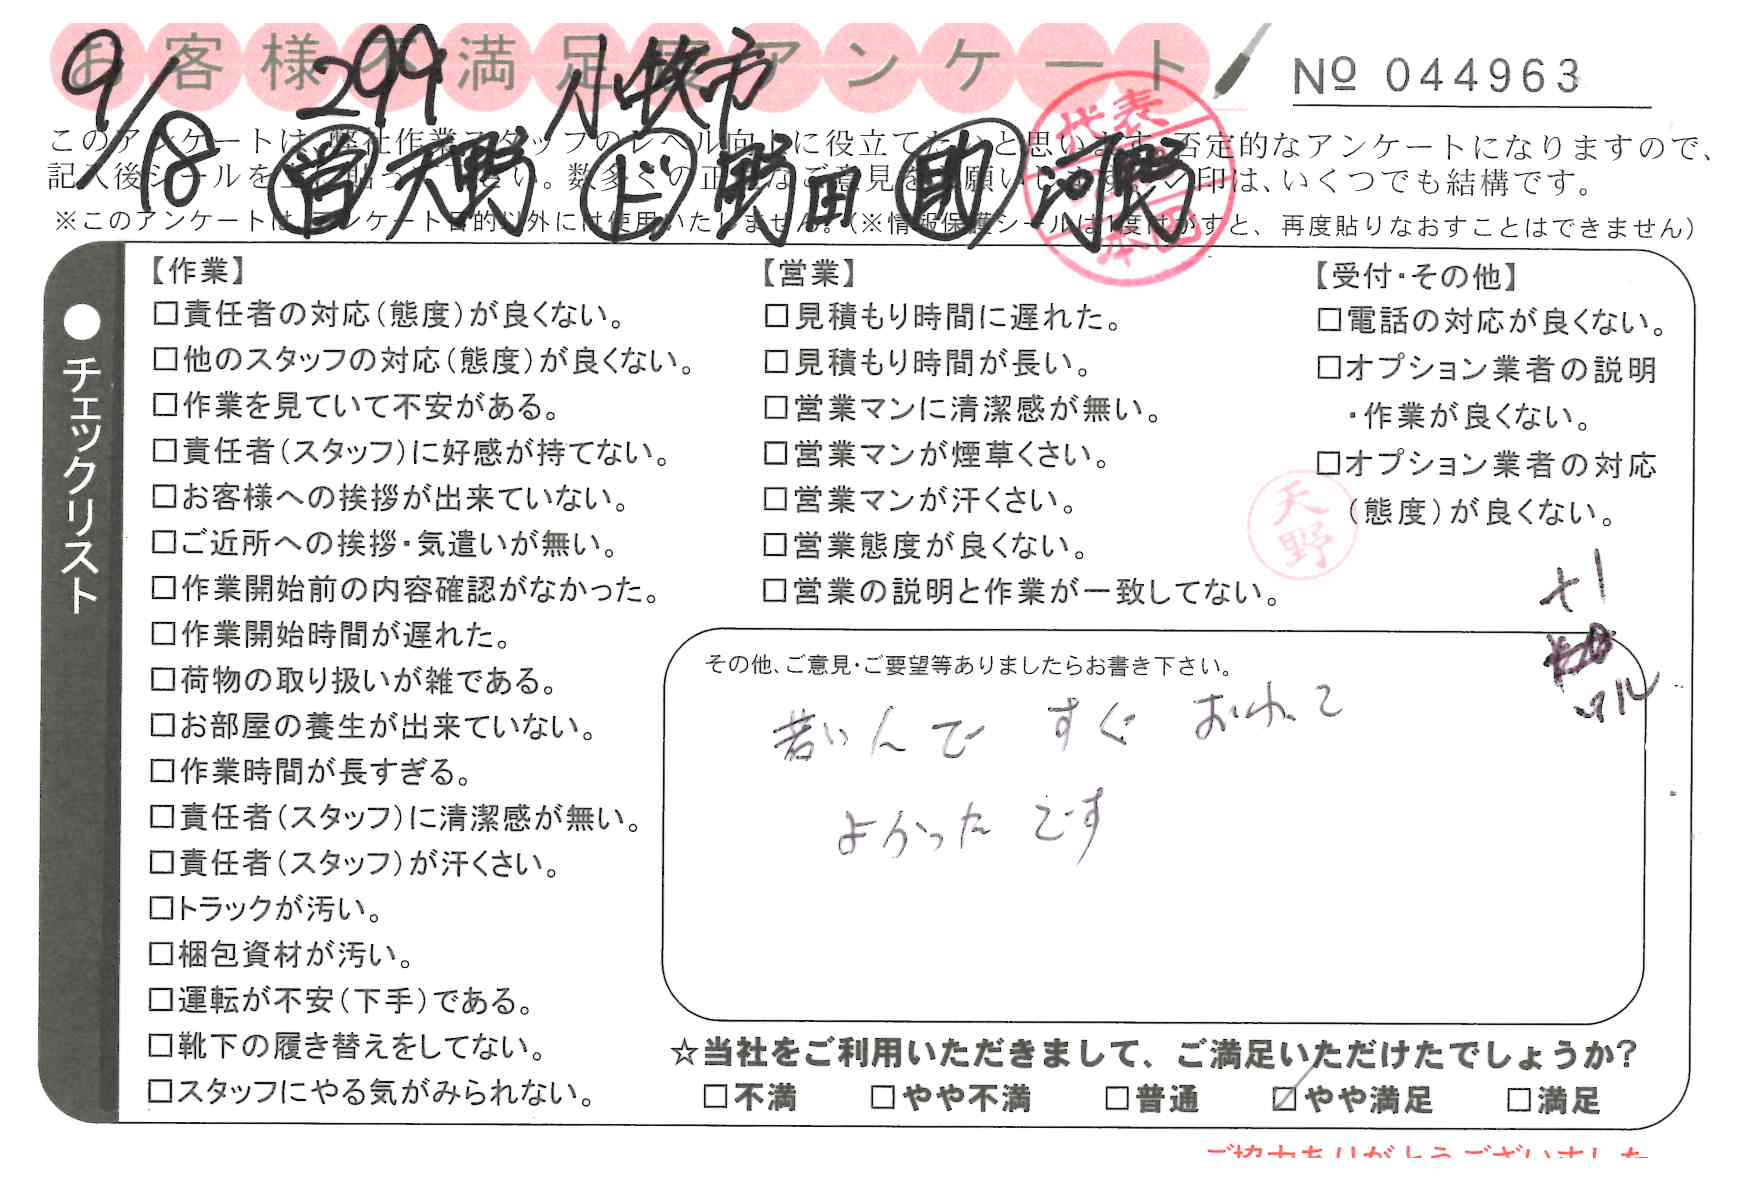 お客様不満足度アンケート
No 044963
9/8 299 小牧市
営 天野 ド 野田 助 河野
このアンケートは、弊社作業スタッフのレベル向上に役立てたいと思います。否定的なアンケートになりますので、
記入後シールを上に貼って下さい。数多くの正直なご意見をお願いします。レ印は、いくつでも結構です。
※このアンケートは、アンケート目的以外には使用いたしません。(※情報保護シールは1度はがすと、再度貼りなおすことはできません)
代表
●チェックリスト
【作業】
□責任者の対応(態度)が良くない。
□他のスタッフの対応(態度)が良くない。
□作業を見ていて不安がある。
□責任者(スタッフ)に好感が持てない。
□お客様への挨拶が出来ていない。
□ご近所への挨拶・気遣いが無い。
□作業開始前の内容確認がなかった。
□作業開始時間が遅れた。
□荷物の取り扱いが雑である。
□お部屋の養生が出来ていない。
□作業時間が長すぎる。
□責任者(スタッフ)に清潔感が無い。
□責任者(スタッフ)が汗くさい。
□トラックが汚い。
□梱包資材が汚い。
□運転が不安(下手)である。
□靴下の履き替えをしてない。
□スタッフにやる気がみられない。
【営業】
□見積もり時間に遅れた。
□見積もり時間が長い。
□営業マンに清潔感が無い。
□営業マンが煙草くさい。
□営業マンが汗くさい。
□営業態度が良くない。
□営業の説明と作業が一致してない。
【受付・その他】
□電話の対応が良くない。
□オプション業者の説明
・作業が良くない。
□オプション業者の対応
(態度)が良くない。
天野
その他、ご意見・ご要望等ありましたらお書き下さい。
若いんで すぐ おわって
よかった です
☆当社をご利用いただきまして、ご満足いただけたでしょうか?
□不満 □やや不満 □普通 ☑やや満足 □満足
ご協力ありがとうございました